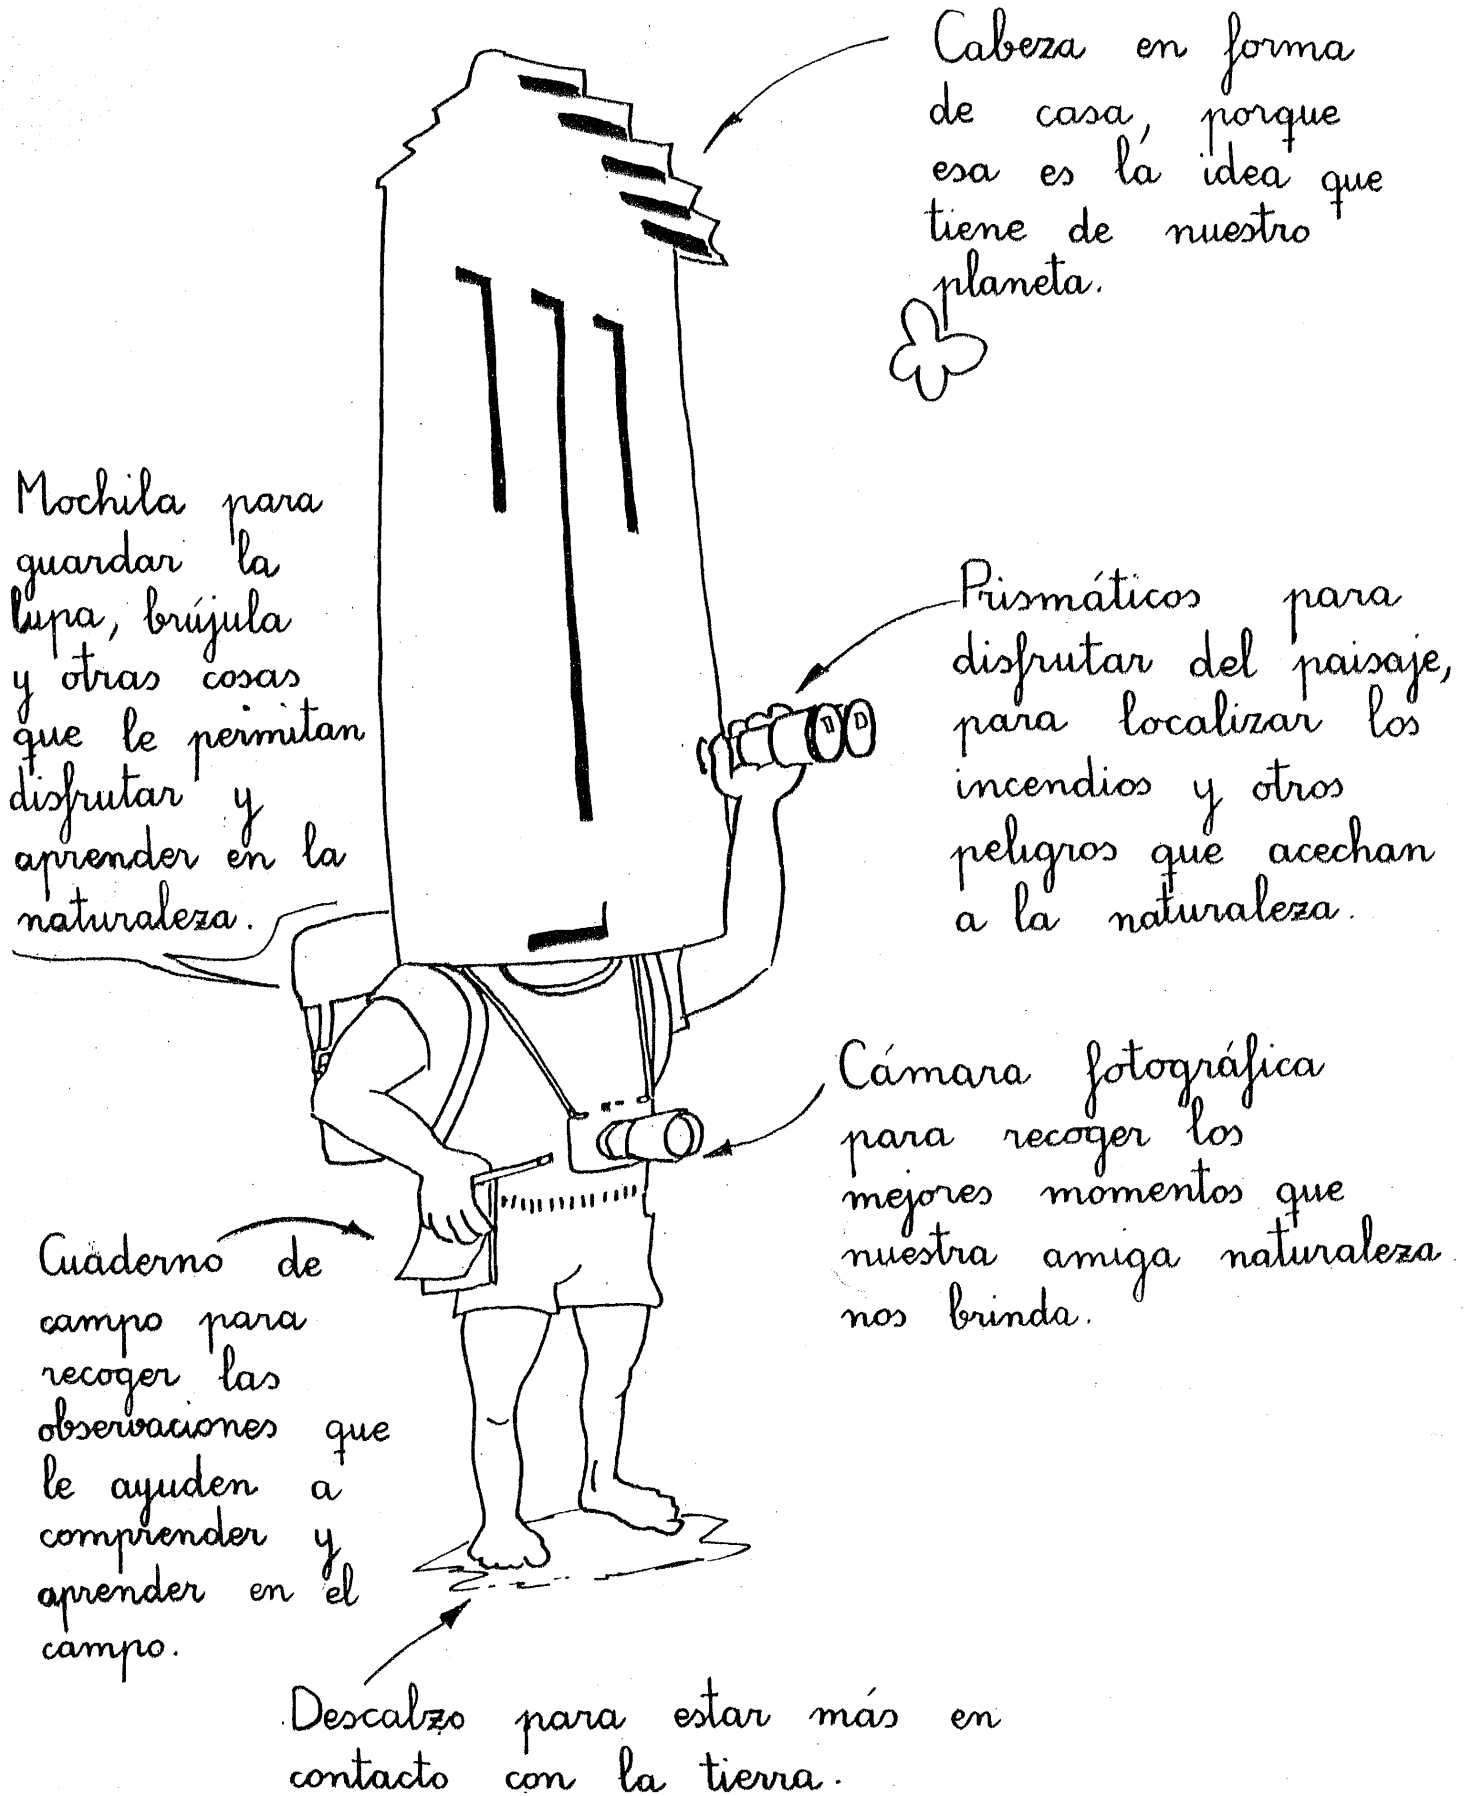 Cabeza en forma
de casa, porque
esa es la idea que
tiene de nuestro
planeta.
Mochila para
guardar la
lupa, brújula
y otras cosas
que le permitan
disfrutar y
aprender en la
naturaleza.
Prismáticos para
disfrutar del paisaje,
para localizar los
incendios y otros
peligros que acechan
a la naturaleza.
Cámara fotográfica
para recoger los
mejores momentos que
nuestra amiga naturaleza
nos brinda.
Cuaderno de
campo para
recoger las
observaciones que
le ayuden a
comprender y
aprender en el
campo.
Descalzo para estar más en
contacto con la tierra.